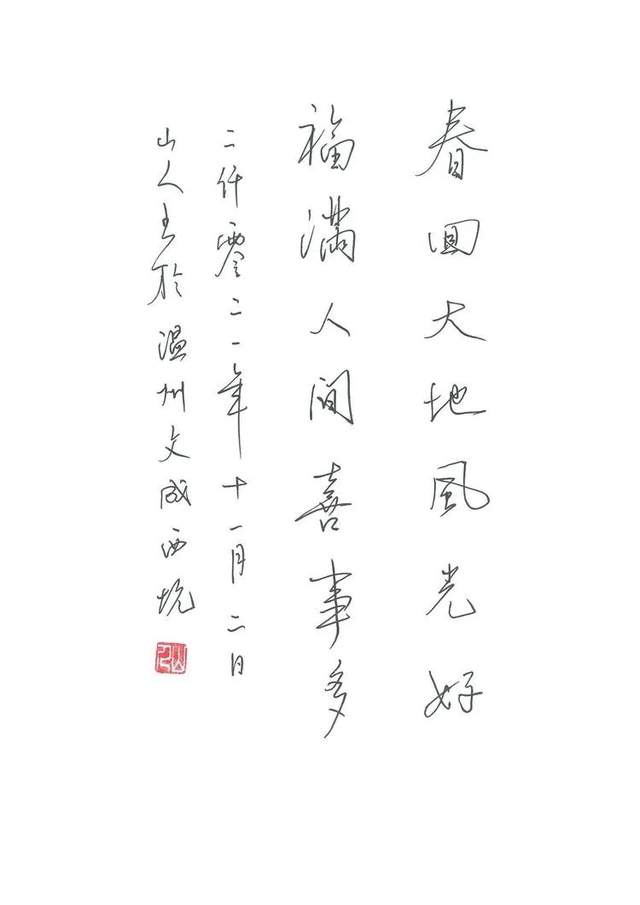 春回大地風光好
福滿人間喜事多
二仟零二一年十一月二日
山人书於温州文成西坑
山人